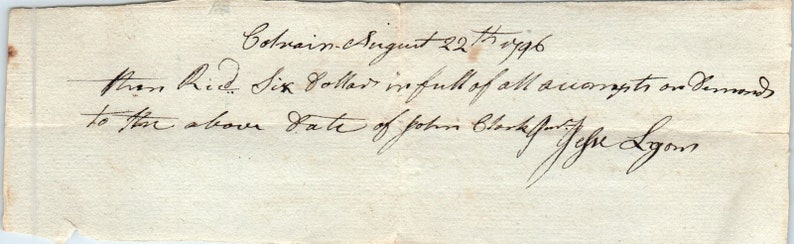 Colrain August 22th 1796
then Recd. Six Dollars in full of all accompts or Demands
to the above Date of John Clark Junr.
Jesse Lyons